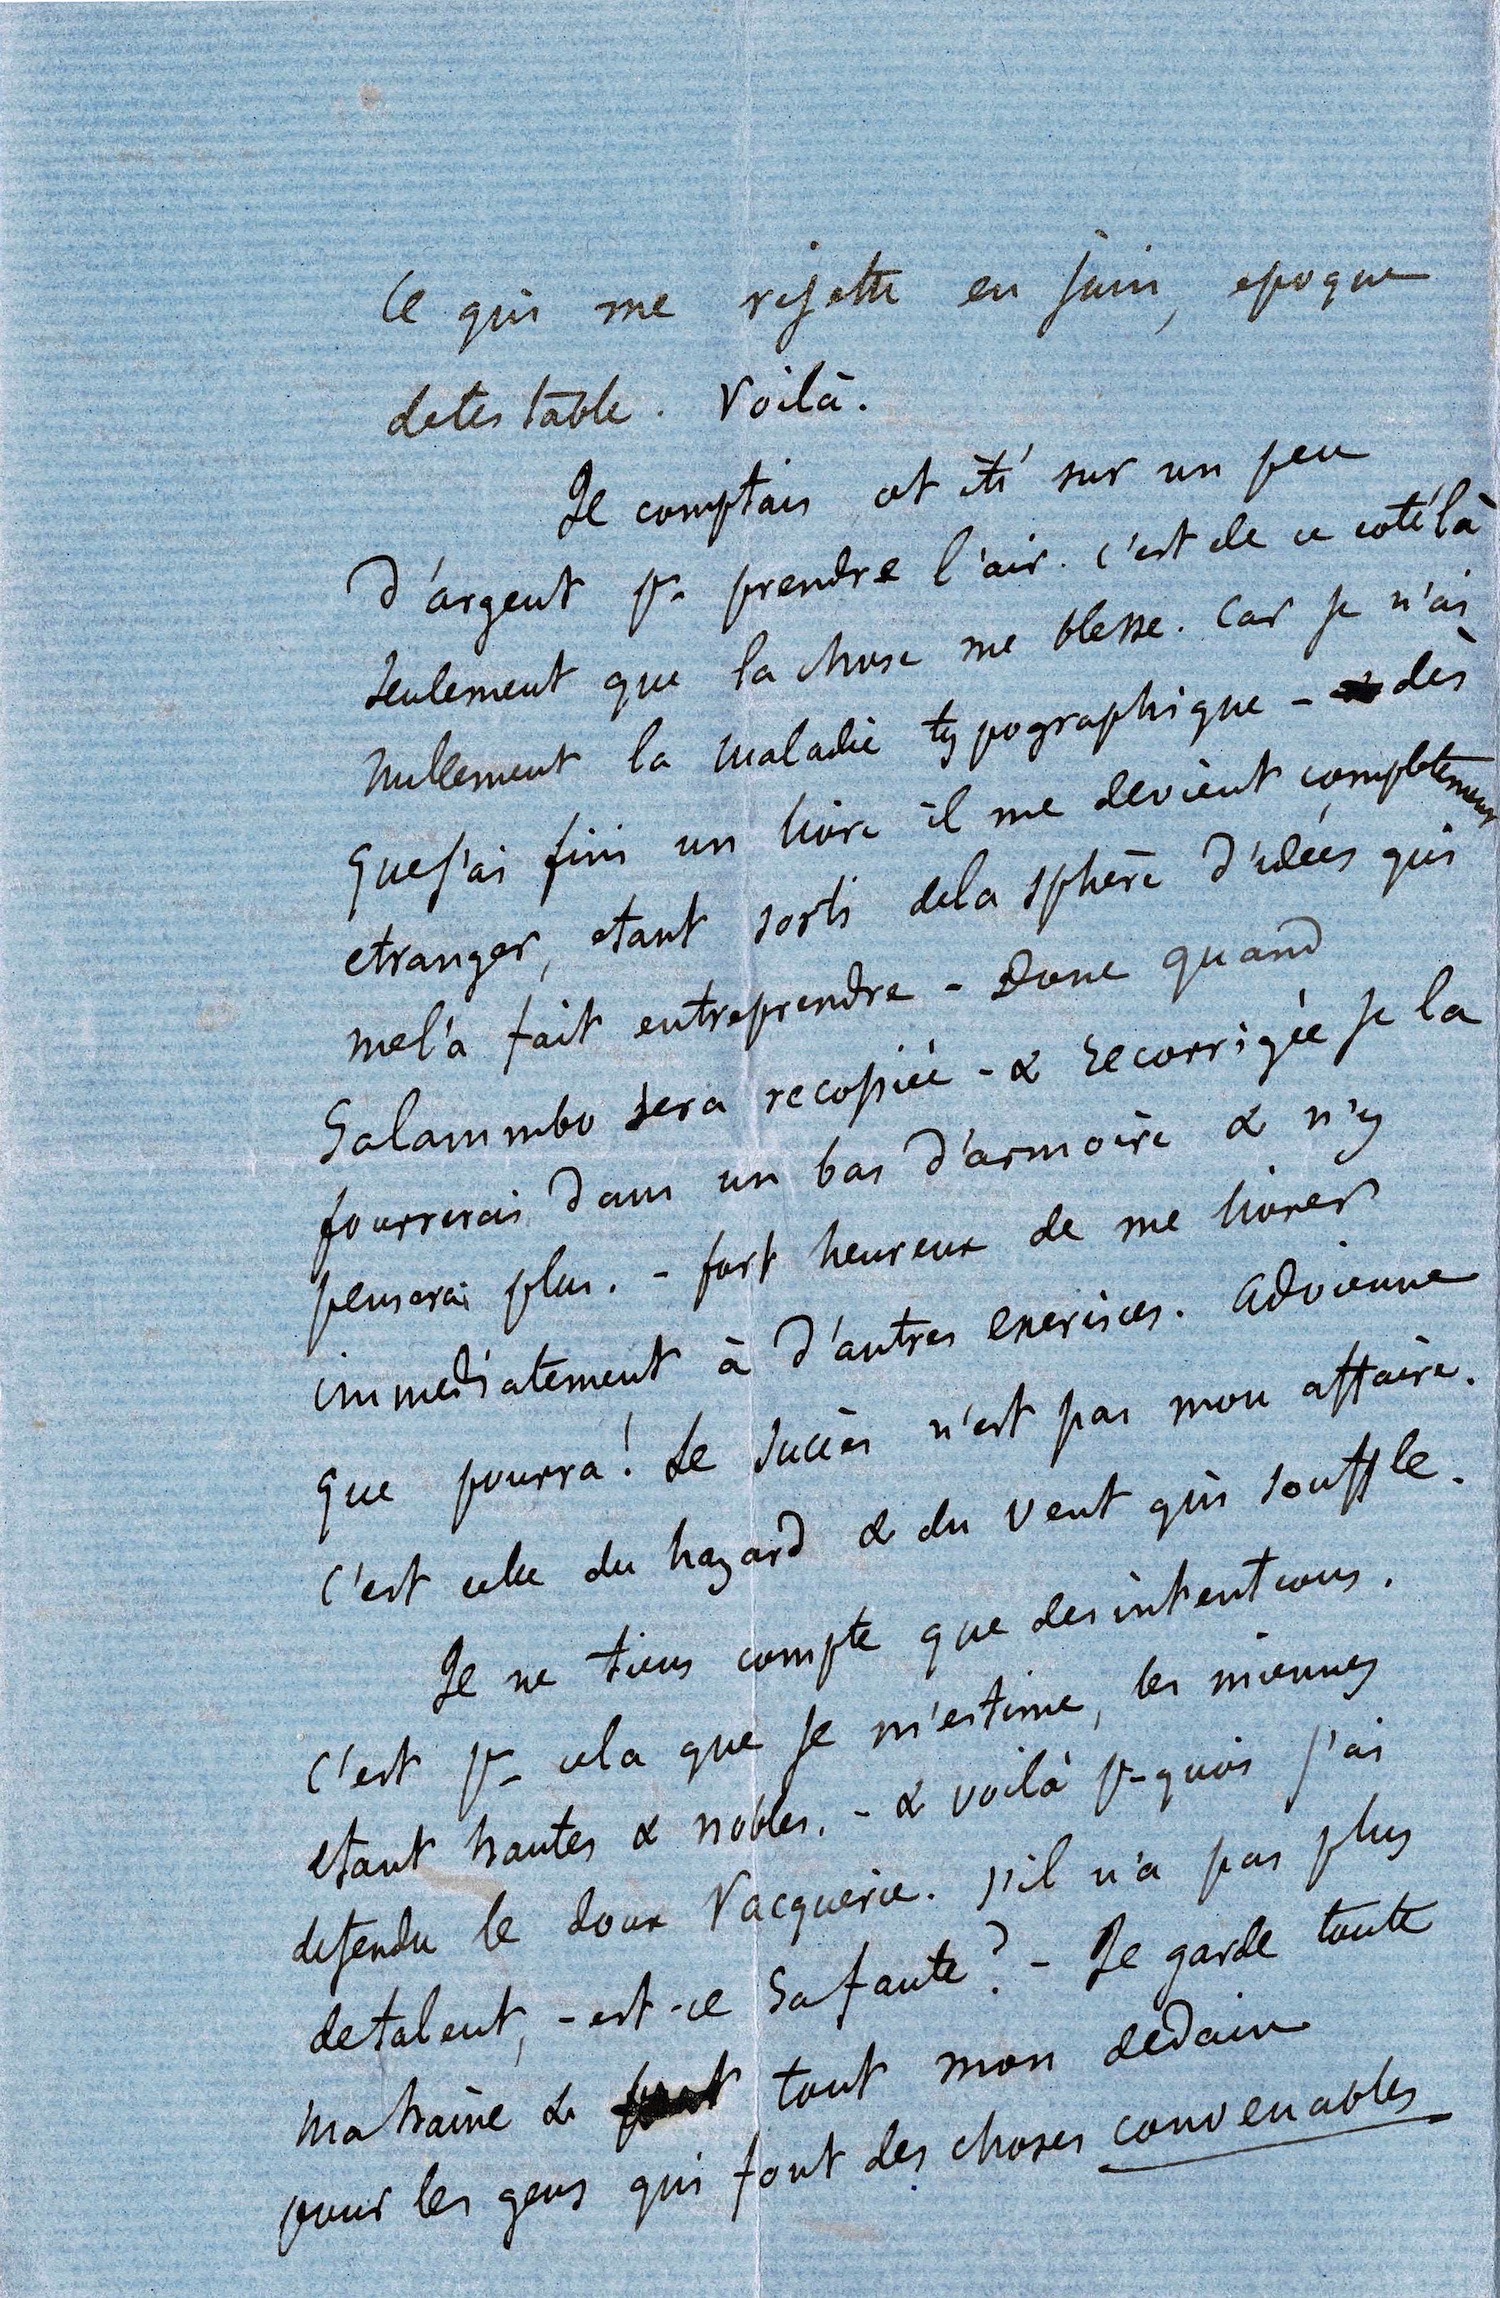 Ce qui me rejette en juin, epoque
detestable. Voilà.
Je comptais cet été sur un peu
d'argent pr prendre l'air. C'est de ce coté là
seulement que la chose me blesse. Car je n'ai
nullement la maladie typographique - dès
que j'ai fini un livre il me devient completement
etranger, etant sorti de la sphère d'idées qui
me l'a fait entreprendre - Donc quand
Salammbo sera recopiée - & recorrigée je la
fourrerai dans un bas d'armoire & n'y
penserai plus. - fort heureux de me livrer
immediatement à d'autres exercices. Advienne
que pourra! Le succès n'est pas mon affaire.
C'est celle du hazard & du vent qui souffle.
Je ne tiens compte que des intentions.
C'est pr cela que je m'estime, les miennes
etant hautes & nobles. - & voilà pr-quoi j'ai
defendu le doux Vacquerie. s'il n'a pas plus
de talent, - est-ce sa faute? - Je garde toute
ma haine & tout mon dedain
pour les gens qui font des choses convenables